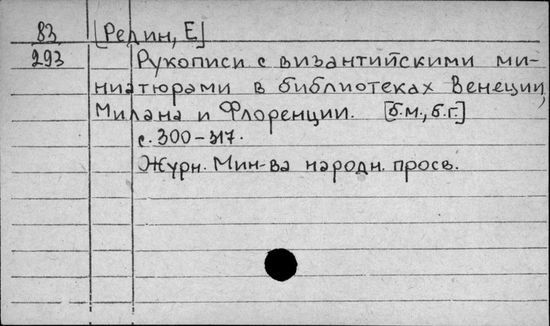 83 [Редин, Е]
293 Рукописи с византийскими ми-
ниатюрами в библиотеках Венеции,
Милана и Флоренции. [б.м., б.г.]
с. 300-317.
Журн. Мин-ва народн. просв.